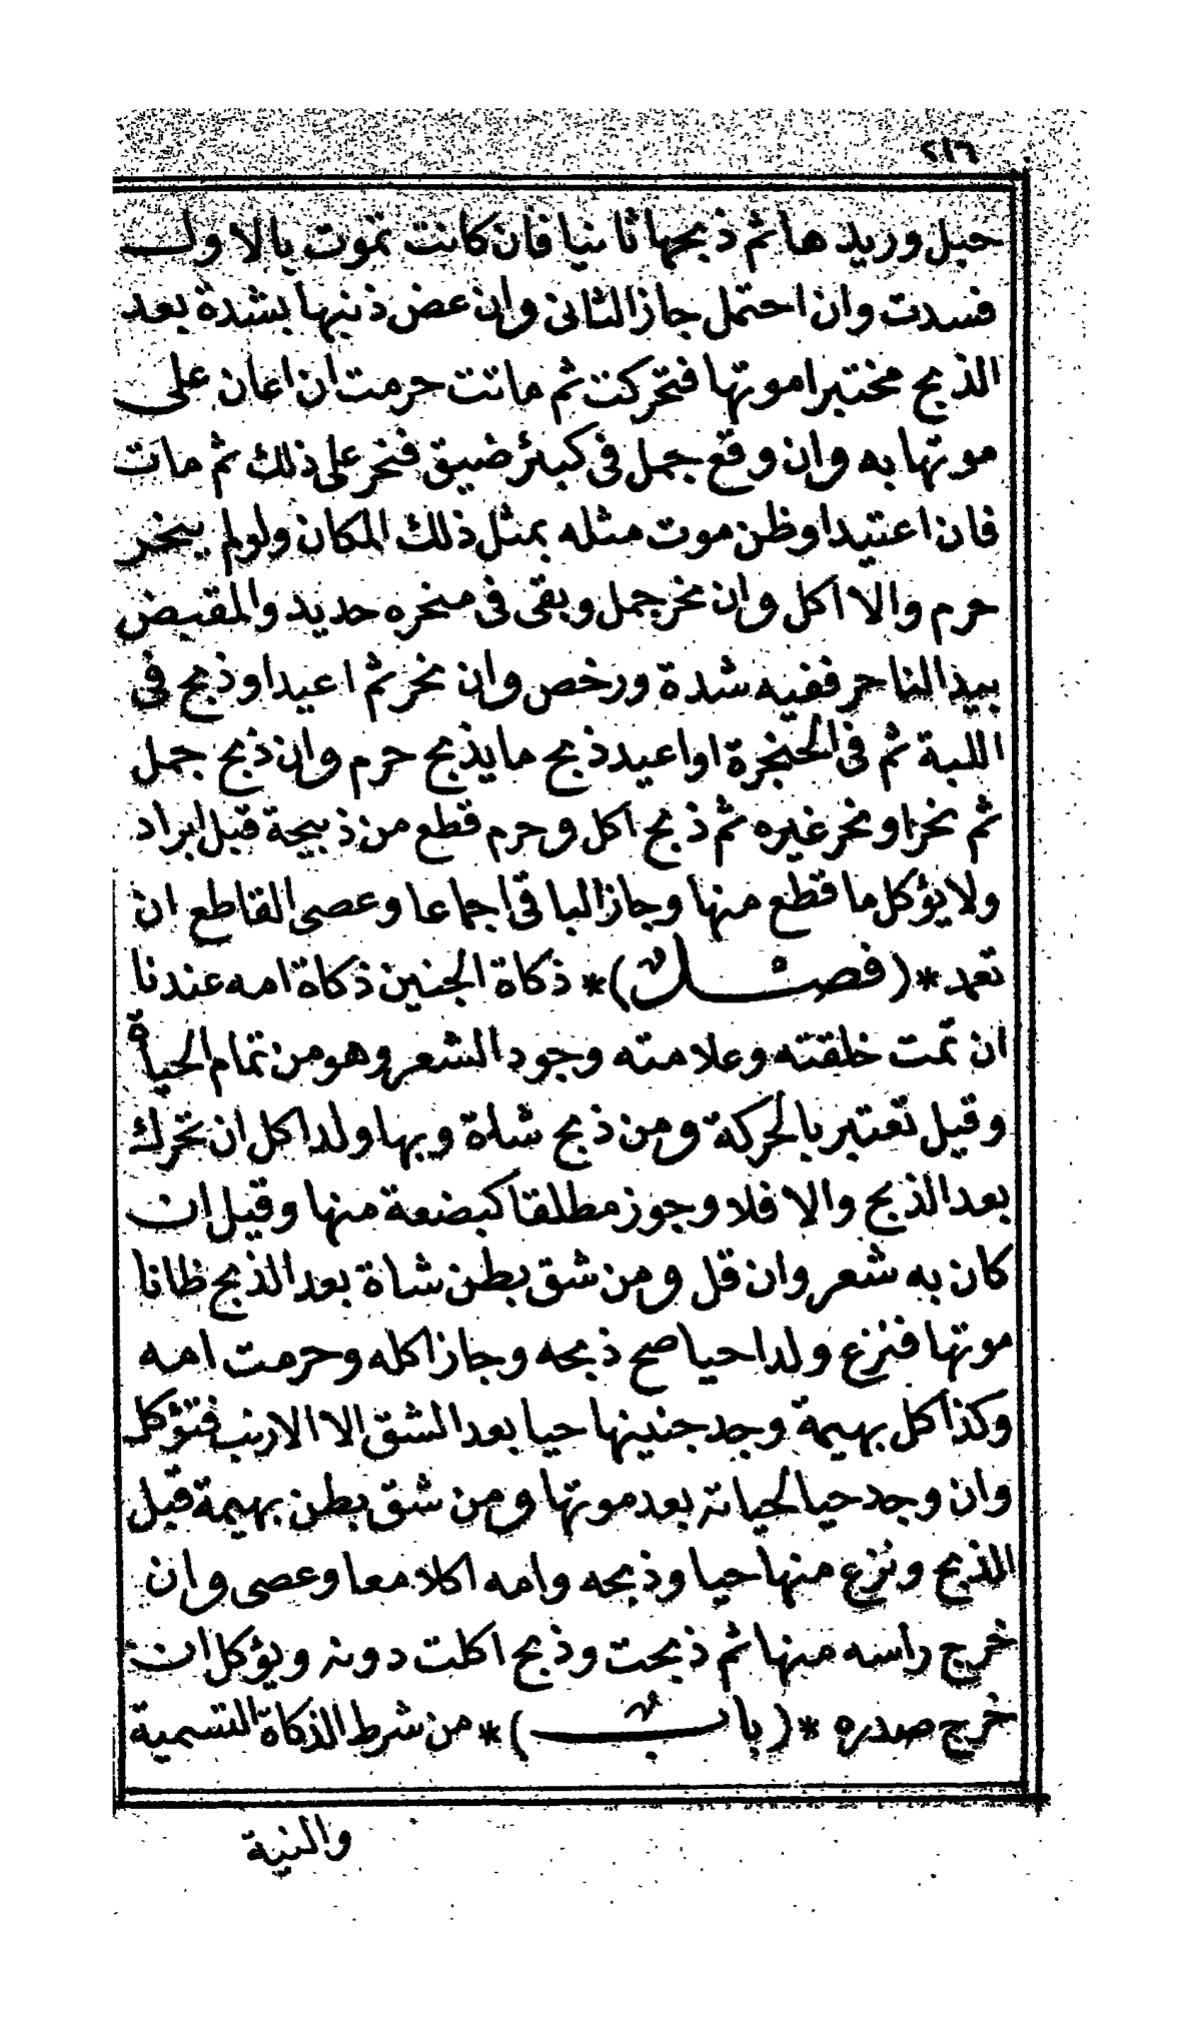 ٢١٦
حبل وريدها ثم ذبحها ثانيا فان كانت تموت بالاول
فسدت وان احتمل جاز الثانى وان عض ذنبها بشدة بعد
الذبح مختبرا موتها فتحركت ثم ماتت حرمت ان اعان على
موتها به وان وقع جمل فى كبئر ضيق فنحر على ذلك ثم مات
فان اعتيد او ظن موت مثله بمثل ذلك المكان ولو لم ينحر
حرم والا اكل وان نحر جمل وبقى فى منحره حديد والمقبض
بيد الناحر ففيه شدة ورخص وان نحر ثم اعيد او ذبح فى
اللبة ثم فى الحنجرة او اعيد ذبح ما يذبح حرم وان ذبح جمل
ثم نحر او نحر غيره ثم ذبح اكل وحرم قطع من ذبيحة قبل ابراد
ولا يؤكل ما قطع منها وجاز الباقى اجماعا وعصى القاطع ان
تعمد *(فصل)* ذكاة الجنين ذكاة امه عندنا
ان تمت خلقته وعلامته وجود الشعر وهو من تمام الحياة
وقيل تعتبر بالحركة ومن ذبح شاة وبها ولد اكل ان تحرك
بعد الذبح والا فلا وجوز مطلقا كبضعة منها وقيل ان
كان به شعر وان قل ومن شق بطن شاة بعد الذبح ظانا
موتها فنزع ولدا حيا صح ذبحه وجاز اكله وحرمت امه
وكذا كل بهيمة وجد جنينها حيا بعد الشق الا الارنب فتؤكل
وان وجد حيا لحياته بعد موتها ومن شق بطن بهيمة قبل
الذبح ونزع منها حيا وذبحه وامه اكلا معا وعصى وان
خرج رأسه منها ثم ذبحت وذبح اكلت دونه ويؤكل ان
خرج صدره *(باب)* من شرط الذكاة التسمية
والنية